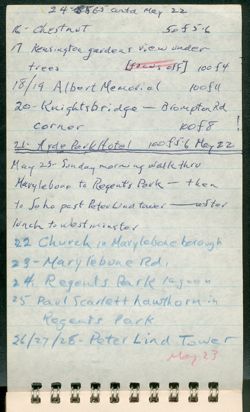 until May 22
16 - Chestnut 50 f 5.6
17 Kensington gardens view under
trees 100 f 4
18/19 Albert Memorial 100 f 11
20 - Knightsbridge - Brompton Rd
corner 100 f 8
21 - Hyde Park Hotel 100 f 5.6 May 22
May 23 - Sunday morning walk thru
Marylebone to Regent's Park - then
to Soho past Peter Lind tower - after
lunch to Westminster
22 Church in Marylebone borough
23 - Marylebone Rd.
24 Regents Park lagoon
25 Paul Scarlett hawthorn in
Regents Park
26/27/28 - Peter Lind Tower
May 23